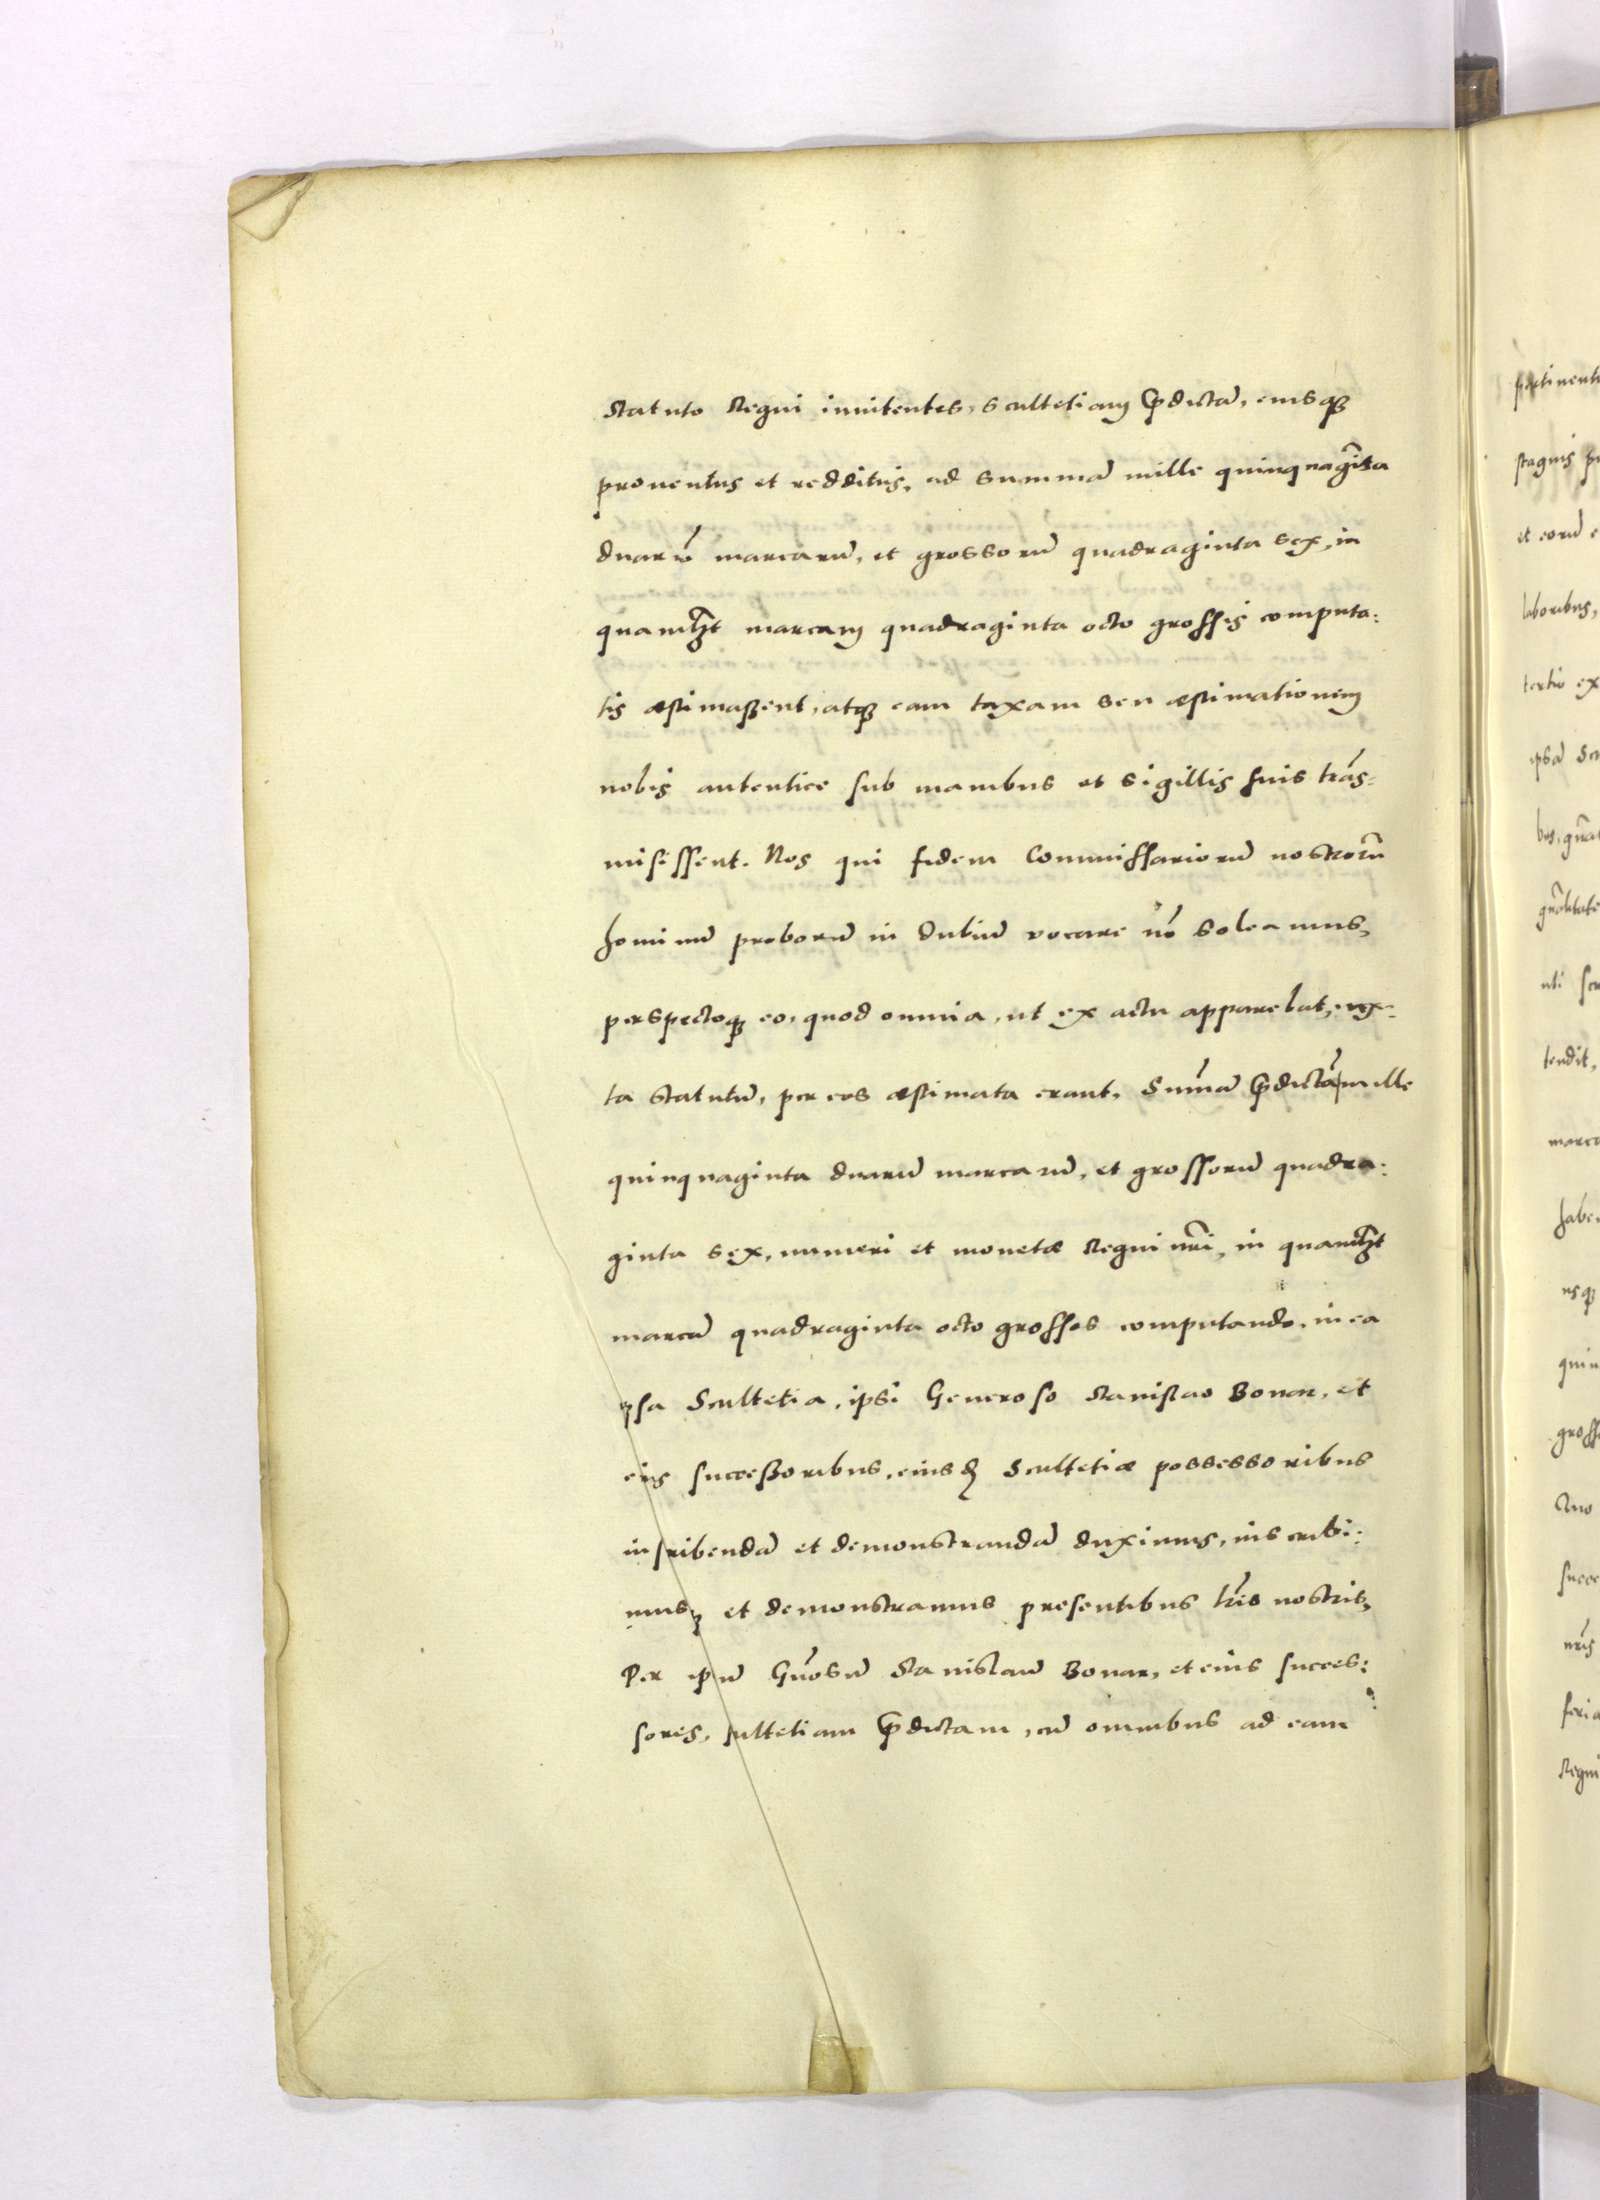 Statuto Regni innitentes, scultetiam p̄dictā, eiusq̨
prouentus et redditus, ad summā mille quinquagīta
duarū marcarū, et grossorū quadraginta sex, in
quamlꝫt marcam quadraginta octo grossis computa:
tis æstimassent, atq̨ eam taxam seu æstimationem
nobis autentice sub manibus et sigillis suis trās-
misissent. Nos qui fidem Commissariorū nostrorū
hominū proborū in dubiū vocare nō soleamus,
perspectoq̨ eo, quod omnia, ut ex actu apparebat, iux-
ta statutū, per eos æstimata erant, Sum̄ā p̄dictā mille
quinquaginta duarū marcarū, et grossorū quadra:
ginta sex, numeri et monetæ Regni nr̄i, in quamlꝫt
marcā quadraginta octo grossos computando, in ea
ipsa Scultetia, ipsi Generoso Stanislao Bonar, et
eius successoribus, eiusdē Scultetiæ possessoribus
inscribendā et demonstrandā duximus, inscribi:
musq̨ et demonstramus presentibus lr̄is nostris,
Per ipūm Gn̄osū Stanislaū Bonar, et eius succes:
sores, scultetiam p̄dictam, cū omnibus ad eam
pertinenti
stagnis
et eorū
laboribus,
tertio ex
ipsā
tendit,
usq̨
Regni